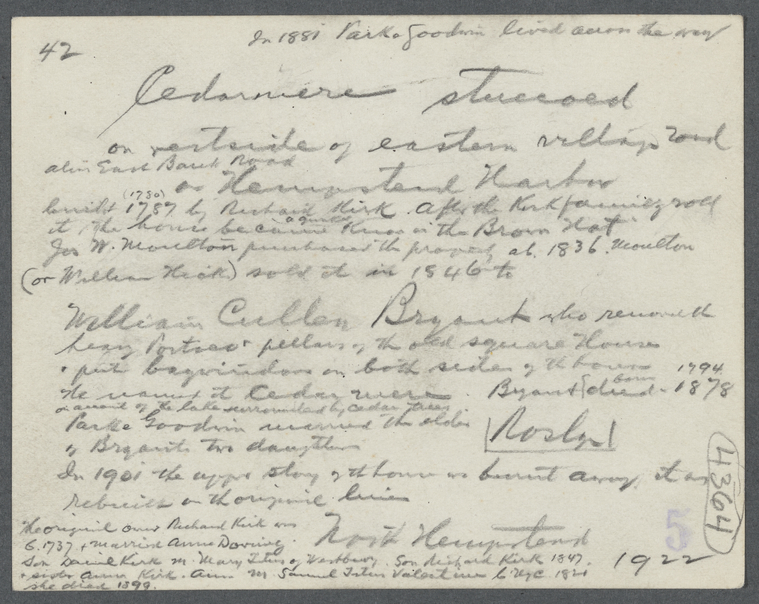 In 1881 Parke Goodwin lived across the way
42
Cedarmere stuccoed
on westside of eastern village road
alias East Bank Road
on Hempstead Harbor
(1780)
built 1787 by Richard Kirk. After the Kirk family sold
a quaker
it the house became Known as the Brown Hat
Jos W. Moulton purchased the property ab. 1836. Moulton
(or William Hicks) sold it in 1846 to
William Cullen Bryant who removed th
heavy Portico & pillars of the old square House
& put baywindows on both sides of th house
He named it Cedarmere. Bryant born 1794 died - 1878
on account of the Lake surrounded by Cedar trees
Parke Goodwin married the elder
of Bryants two daughters
Roslyn
In 1901 the upper story of th house was burnt away, it was
rebuilt on th original lines
The original owner Richard Kirk was
b. 1737 & married Anne Dorring.
North Hempstead
Son Daniel Kirk m. Mary Titus of Westbury. Son Richard Kirk 1847.
& sister Anna Kirk. Ann m. Samuel Titus Valentine b. NYC. 1821
she died 1899.
1922
5
4364